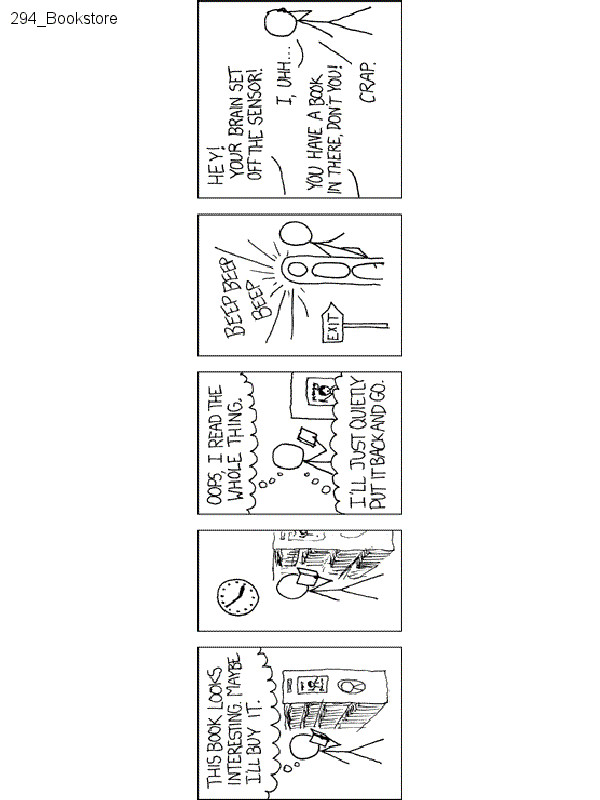 294_Bookstore
THIS BOOK LOOKS
INTERESTING. MAYBE
I'LL BUY IT.
OOPS, I READ THE
WHOLE THING.
I'LL JUST QUIETLY
PUT IT BACK AND GO.
BEEP BEEP
BEEP
EXIT
HEY!
YOUR BRAIN SET
OFF THE SENSOR!
I, UHH...
YOU HAVE A BOOK
IN THERE, DON'T YOU!
CRAP.